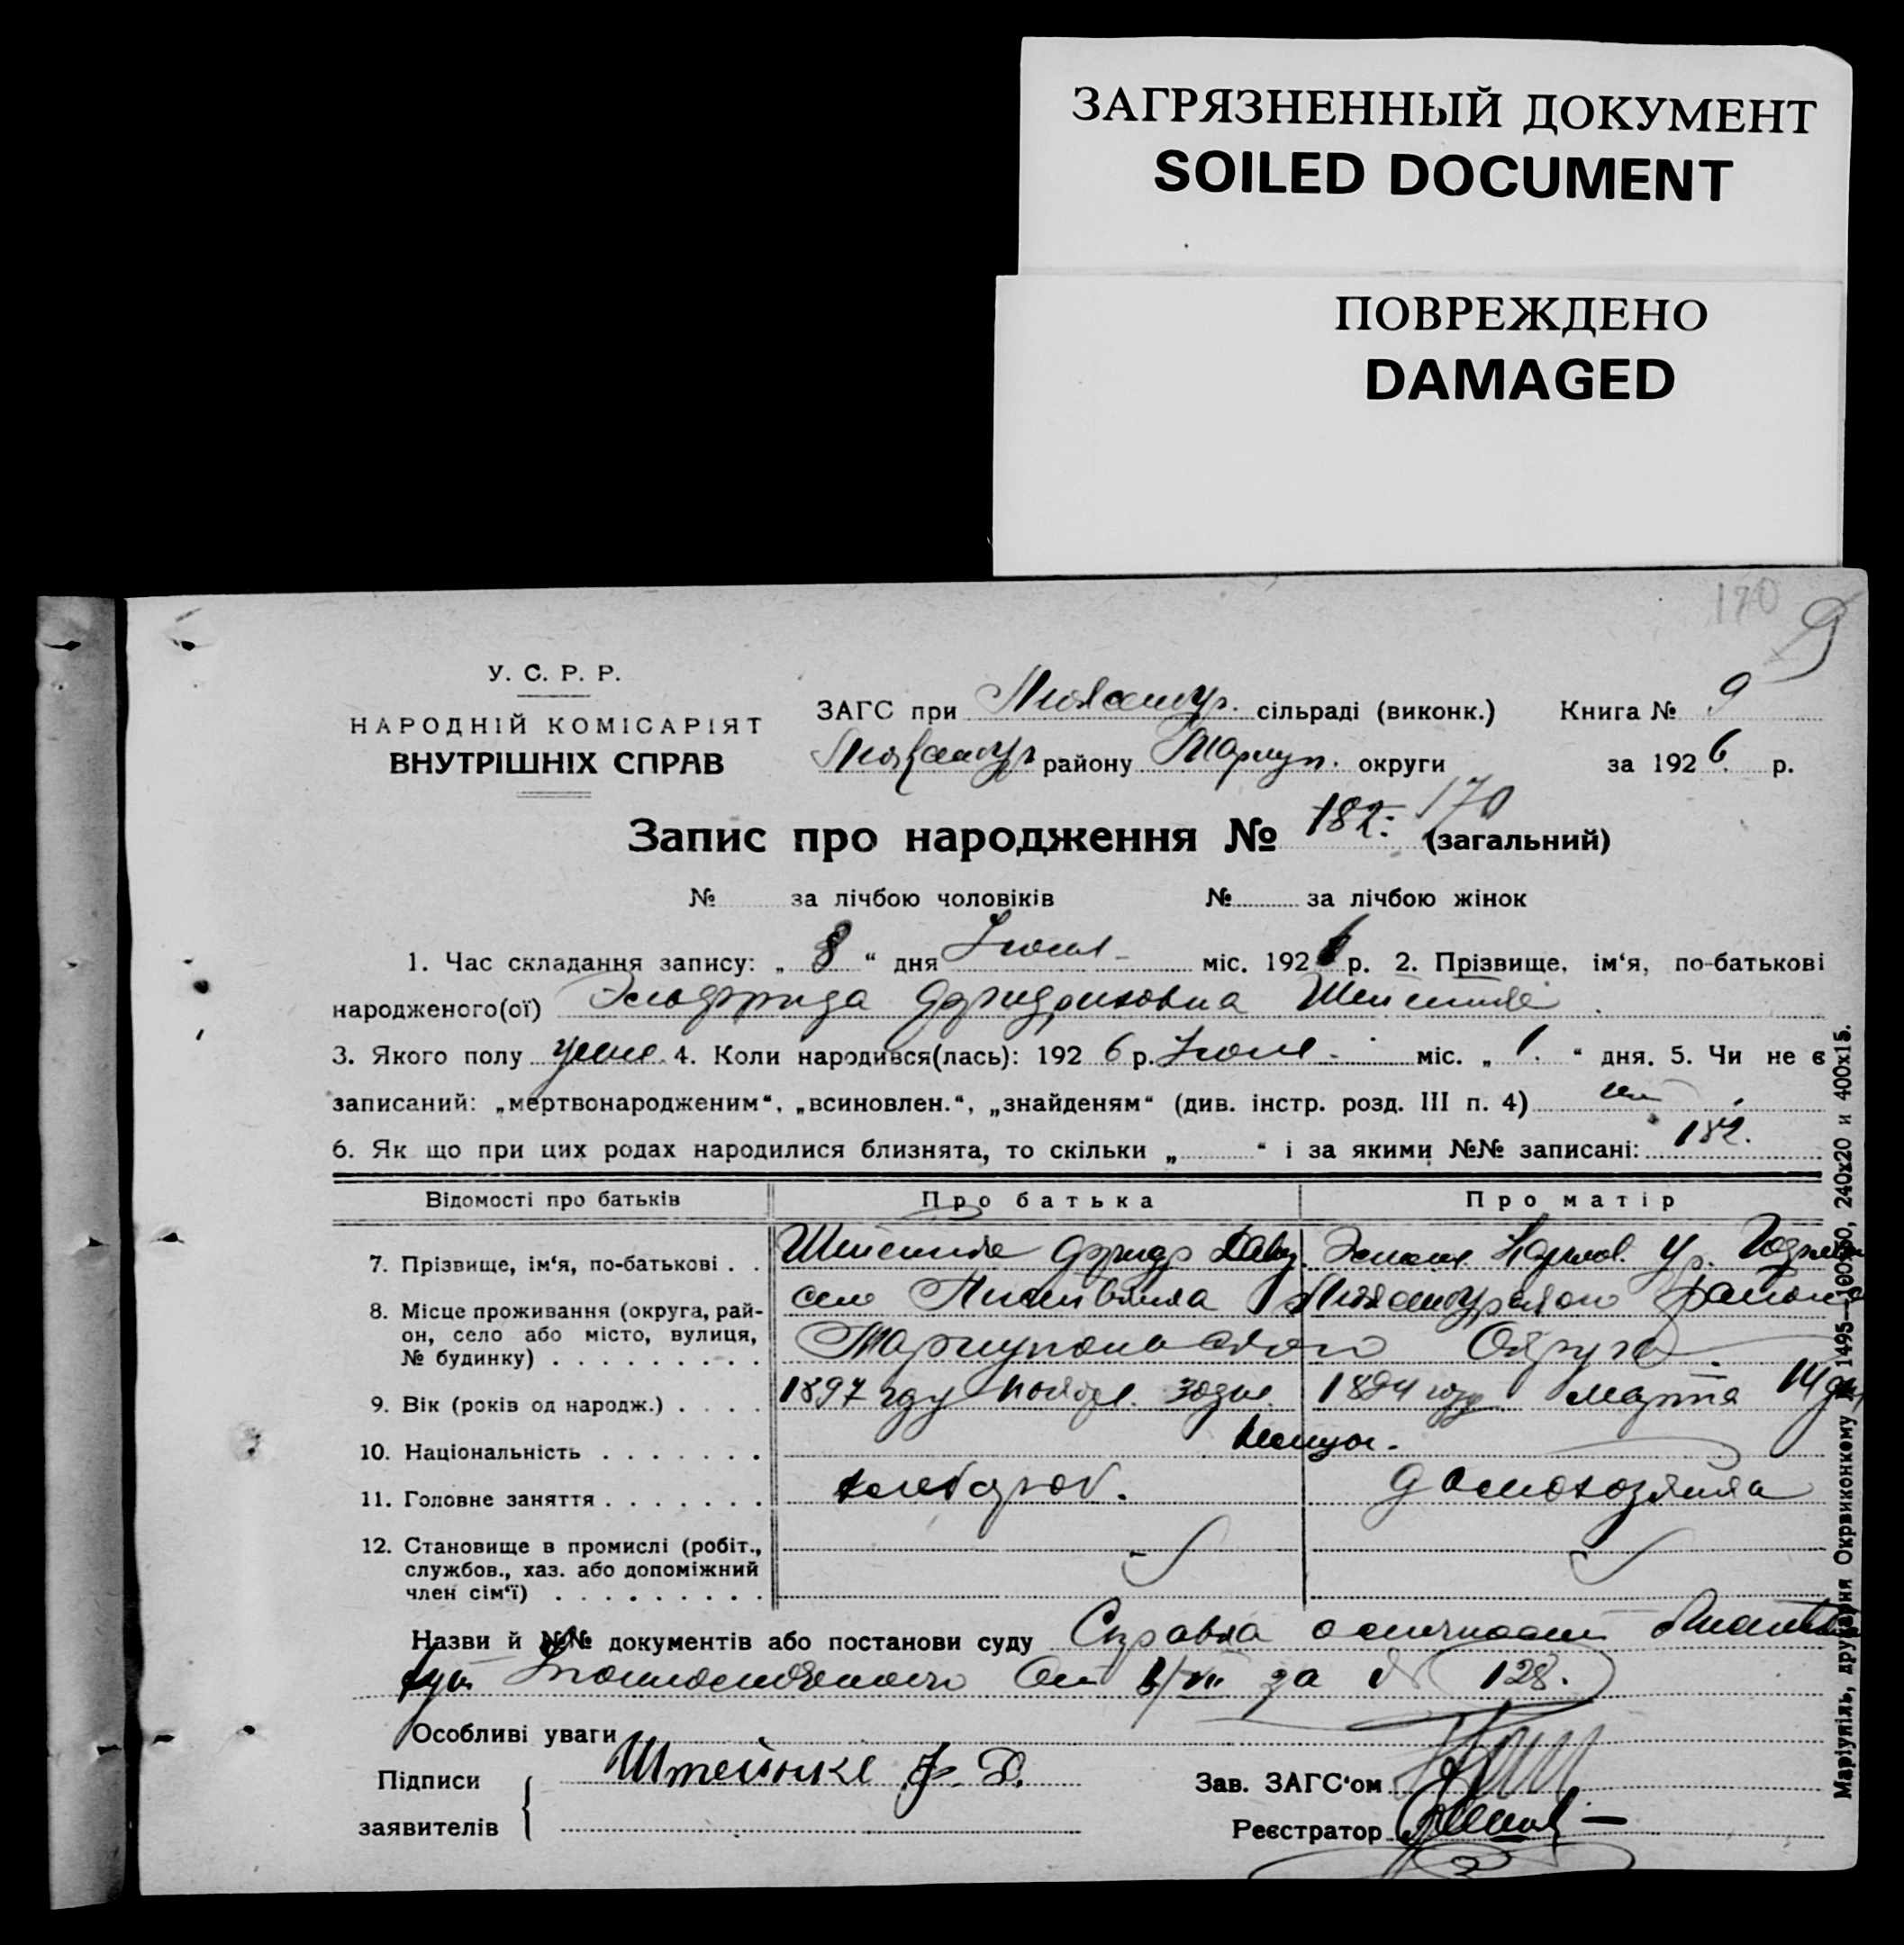 ЗАГРЯЗНЕННЫЙ ДОКУМЕНТ
SOILED DOCUMENT
ПОВРЕЖДЕНО
DAMAGED
170
У. С. Р. Р.
НАРОДНІЙ КОМІСАРІЯТ
ВНУТРІШНІХ СПРАВ
ЗАГС при Люксембур. сільраді (виконк.) Книга № 9
Люксембур району Мариуп. округи за 1926 р.
Запис про народження № 182. 170 (загальний)
№ за лічбою чоловіків № за лічбою жінок
1. Час складання запису: „ 8 “ дня Июля міс. 1926 р. 2. Прізвище, ім‘я, по-батькові
народженого(ої) Эльфрида Фридриховна Штейнке
3. Якого полу жене. 4. Коли народився(лась): 1926 р. Июля міс. „ 1. “ дня. 5. Чи не є
записаний: „мертвонародженим“, „всиновлен.“, „знайденям“ (див. інстр. розд. III п. 4)
6. Як що при цих родах народилися близнята, то скільки „ “ і за якими №№ записані: 182.
Відомості про батьків Про батька Про матір
7. Прізвище, ім‘я, по-батькові . . Штейнке Фридр Карлов. Ур.
8. Місце проживання (округа, рай- село Люксембургского района
он, село або місто, вулиця, Мариупольского Округа.
№ будинку)
9. Вік (років од народж.) 1897 году Ноября. 30 дня. 1894 году марта 14 дня
10. Національність Немцы.
11. Головне заняття хлебороб. домохозяйка
12. Становище в промислі (робіт.,
службов., хаз. або допоміжний
член сім‘ї)
Назви й №№ документів або постанови суду Справка о личности
от 8/VII за № 128.
Особливі уваги
Підписи Штейнке Ф. Д. Зав. ЗАГС‘ом
заявителів Реєстратор
Маріупіль, друкарня Окрвиконкому № 1495—100х50, 240х20 и 400х15.